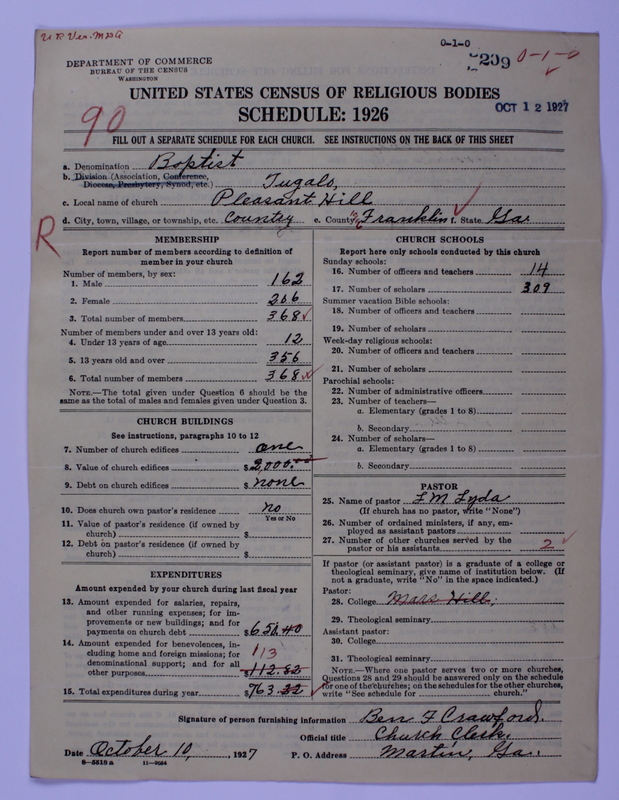 U.S. Census of Religious Bodies
0-1-0
209 0-1-0
DEPARTMENT OF COMMERCE
BUREAU OF THE CENSUS
WASHINGTON
UNITED STATES CENSUS OF RELIGIOUS BODIES
SCHEDULE: 1926
OCT 12 1927
90
FILL OUT A SEPARATE SCHEDULE FOR EACH CHURCH. SEE INSTRUCTIONS ON THE BACK OF THIS SHEET
a. Denomination Baptist
b. Division (Association, Conference, Diocese, Presbytery, Synod, etc.) Tugalo,
c. Local name of church Pleasant Hill
d. City, town, village, or township, etc. Country e. County Franklin f. State Ga.
R
MEMBERSHIP
Report number of members according to definition of
member in your church
Number of members, by sex:
1. Male 162
2. Female 206
3. Total number of members 368
Number of members under and over 13 years old:
4. Under 13 years of age 12
5. 13 years old and over 356
6. Total number of members 368
NOTE.—The total given under Question 6 should be the
same as the total of males and females given under Question 3.
CHURCH BUILDINGS
See instructions, paragraphs 10 to 12
7. Number of church edifices one
8. Value of church edifices $2,000.00
9. Debt on church edifices $ none
10. Does church own pastor's residence no
Yes or No
11. Value of pastor's residence (if owned by
church) $
12. Debt on pastor's residence (if owned by
church) $
EXPENDITURES
Amount expended by your church during last fiscal year
13. Amount expended for salaries, repairs,
and other running expenses; for im-
provements or new buildings; and for
payments on church debt $650.40
14. Amount expended for benevolences, in-
cluding home and foreign missions; for
denominational support; and for all
other purposes 113 $112.82
15. Total expenditures during year $763.22
CHURCH SCHOOLS
Report here only schools conducted by this church
Sunday schools:
16. Number of officers and teachers 14
17. Number of scholars 309
Summer vacation Bible schools:
18. Number of officers and teachers
19. Number of scholars
Week-day religious schools:
20. Number of officers and teachers
21. Number of scholars
Parochial schools:
22. Number of administrative officers
23. Number of teachers—
a. Elementary (grades 1 to 8)
b. Secondary
24. Number of scholars—
a. Elementary (grades 1 to 8)
b. Secondary
PASTOR
25. Name of pastor L M Lyda
(If church has no pastor, write "None")
26. Number of ordained ministers, if any, em-
ployed as assistant pastors
27. Number of other churches served by the
pastor or his assistants 2
If pastor (or assistant pastor) is a graduate of a college or
theological seminary, give name of institution below. (If
not a graduate, write "No" in the space indicated.)
Pastor:
28. College Mars Hill,
29. Theological seminary
Assistant pastor:
30. College
31. Theological seminary
NOTE.—Where one pastor serves two or more churches,
Questions 28 and 29 should be answered only on the schedule
for one of the churches; on the schedules for the other churches,
write "See schedule for church."
Signature of person furnishing information Ben F Crawford.
Official title Church Clerk.
Date October 10, 1927 P. O. Address Martin, Ga.
8—5318 a 11—9034